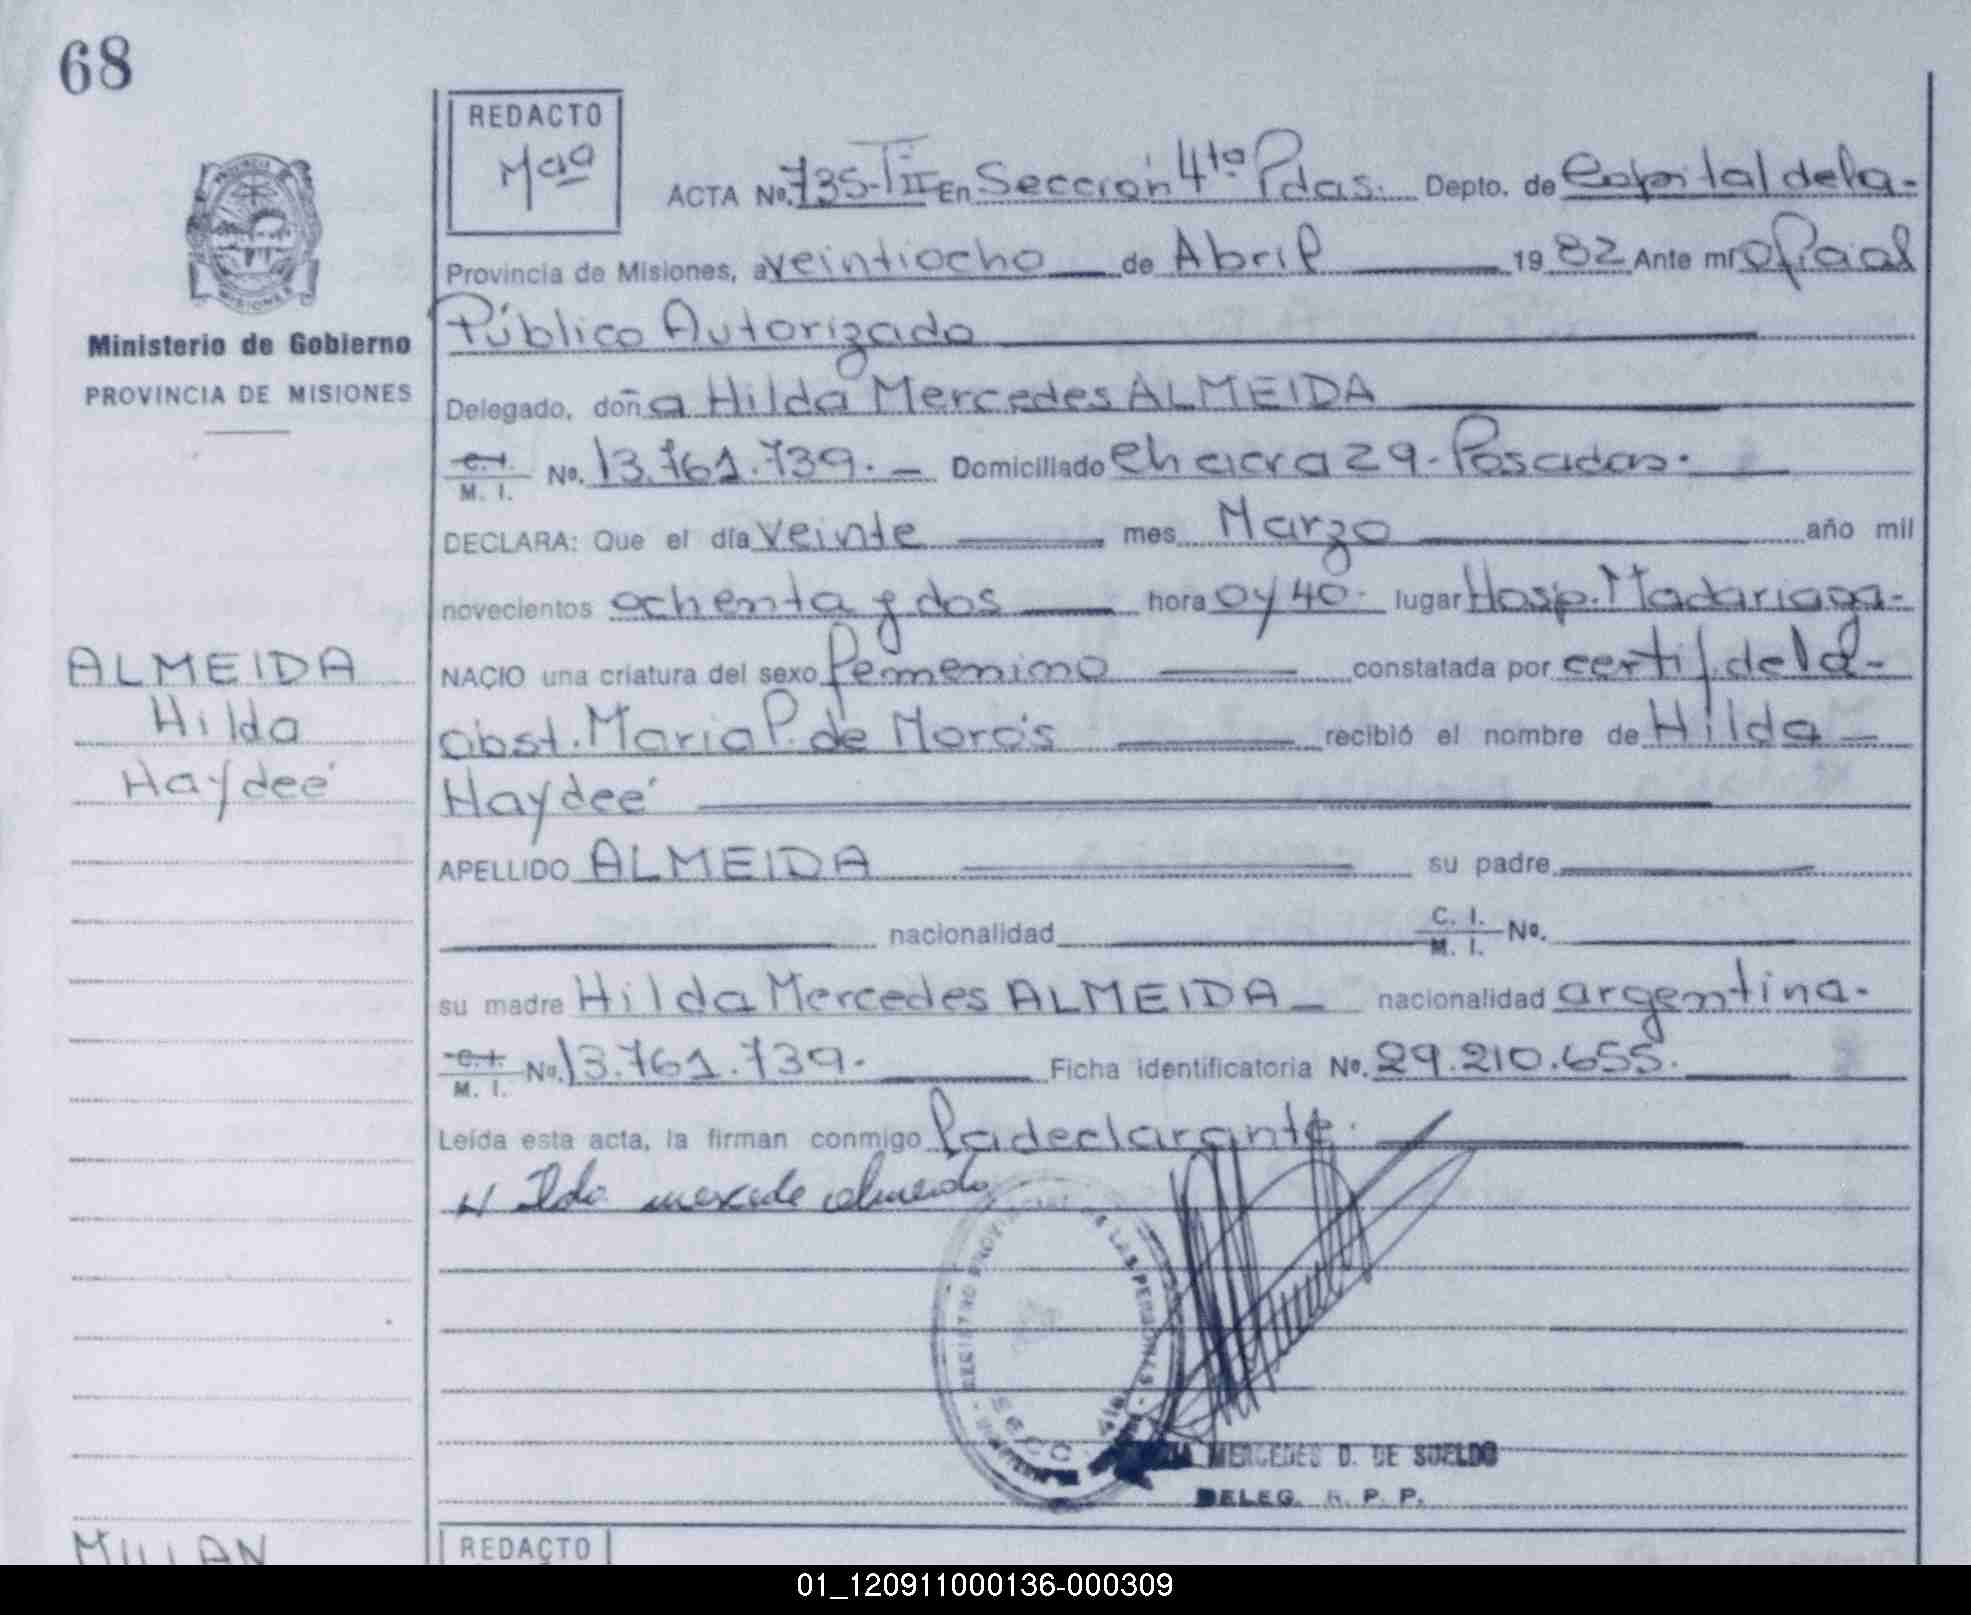 68
REDACTO
Mªª
ACTA Nº. 735-TII En Sección 4ta Pdas. Depto. de Capital de la-
Provincia de Misiones, a veintiocho de Abril 1982 Ante mí Oficial
Público Autorizado
Ministerio de Gobierno
PROVINCIA DE MISIONES
Delegado, doña Hilda Mercedes ALMEIDA
C. I. / M. I. No. 13.761.739.- Domiciliado Chacra 29-Posadas.-
DECLARA: Que el día veinte mes Marzo año mil
novecientos ochenta y dos hora 0 y 40. lugar Hosp. Madariaga-
NACIO una criatura del sexo femenino constatada por certif. de la-
obst. Maria P. de Moro's recibió el nombre de Hilda-
Haydeé
ALMEIDA
Hilda
Haydeé
APELLIDO ALMEIDA su padre
nacionalidad C. I. / M. I. Nº.
su madre Hilda Mercedes ALMEIDA- nacionalidad argentina-
C. I. / M. I. Nº. 13.761.739.- Ficha identificatoria Nº. 29.210.655.
Leída esta acta, la firman conmigo la declarante.
REGISTRO PROVINCIAL DE LAS PERSONAS
SECC. 4ta
MERCEDES D. DE SUELDO
DELEG. R. P. P.
MILLAN
REDACTO
01_120911000136-000309